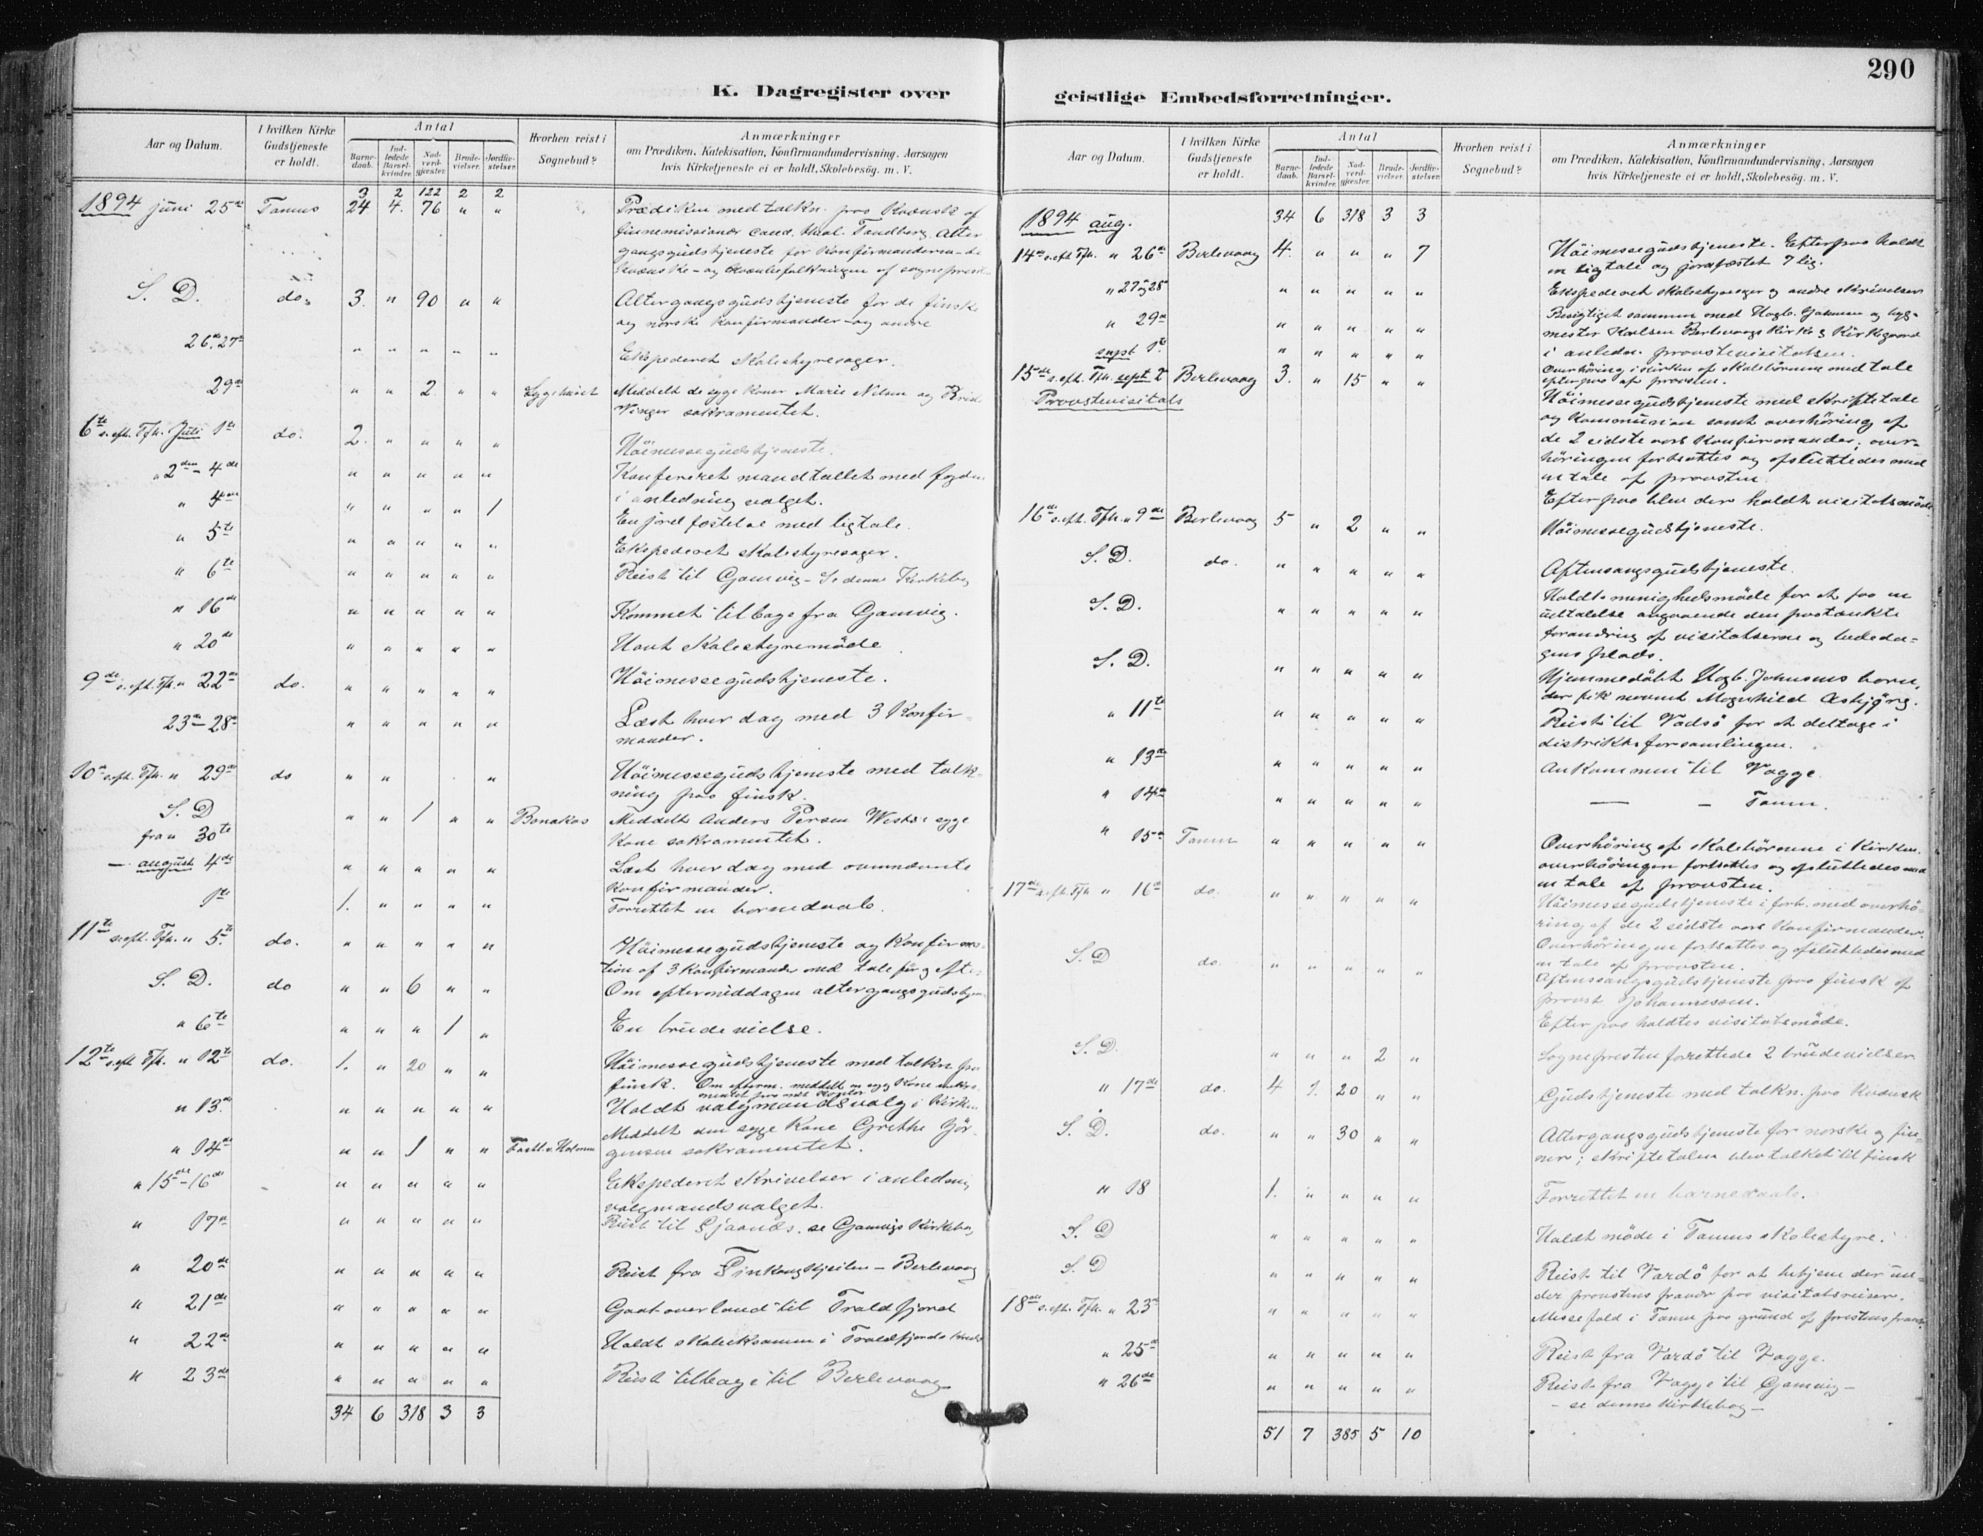 290
K. Dagregister over geistlige Embedsforretninger.
Aar og Datum.
I hvilken Kirke Gudstjeneste er holdt.
Antal
Barne-daab.
Ind-ledede Barsel-kvinder.
Nad-verd-gjæster.
Brude-vielser.
Jordfæ-stelser.
Hvorhen reist i Sognebud?
Anmærkninger
om Prædiken, Katekisation, Konfirmandundervisning, Aarsagen
hvis Kirketjeneste ei er holdt, Skolebesøg. m. V.
3 2 122 2 2
1894 juni 25de Tanens 24 4. 76 " " Prædiken med tolkn. paa kvænsk af
finnemissionær cand. Tandberg. Alter
gangsgudstjeneste for konfirmanderne de
kvænske og af sognepresten
S. D. do. 3. " 90 " " Altergangsgudstjeneste for de finske
og norske konfirmander og andre
26de 27de " " " " " Ekspederet skolestyresager.
29de " " 2 " " Sygehuset Meddelt de syge koner Marie Nilsen og
sakramentet.
6te s. eft. Tfh. Juli 1ste do. 2. " " " " Höimessegudstjeneste.
" 2den - 4de " " " " " Konfereret mandtallet med fogden
i anledning valget.
" 4de " " " " 1 En jordfæstelse med ligtale.
" 5te " " " " " Ekspederet skolestyresager.
" 6te " " " " " Reist til Gamvig - Se denne Kirkebog
" 16de " " " " " Kommet tilbage fra Gamvig.
" 20de " " " " " Havt skolestyremöde
9de s. eft. Tfh. " 22de do. " " " " " Höimessegudstjeneste.
23de - 28de " " " " " Læst hver dag med 3 konfir-
mander.
10de s. eft. Tfh. " 29de do " " " Höimessegudstjeneste med tolk-
ning paa finsk.
S. D " " 1 " " Bonakas Meddelt Anders Persen syge
kone sakramentet.
fra " 30te
— august 4de " " " " " Læst hver dag med ovennævnte
konfirmander.
1ste 1. " " " " Forrettet en barnedaab.
11te s. eft. Tfh. " 5te do. " " " " " Höimessegudstjeneste og konfirma-
tion af 3 konfirmander med tale för og efter.
S. D. do " " 6 " " Om eftermiddagen altergangsgudstjen.
" 6te " " " 1 " En brudevielse.
12te s. eft. Tfh. " 12te do. 1. " 20 " " Höimessegudstjeneste med tolkn. paa
finsk. Om efterm. meddelt en syg kone sakra-
mentet
" 13de " " " " " Holdt valgmandsvalg i kirken
" 14de " " 1 " " Meddelt den syge kone Grethe Jör-
gensen sakramentet.
" 15de - 16de " " " " " Ekspederet skrivelser i anledning
valgmandsvalget.
" 17de " " " " " Reist til se Gamvigs Kirkebog
" 20de " " " " " Reist fra Finkongkjeilen - Berlevaag
" 21de " " " " " Gaat overland til Troldfjord
" 22de " " " " " Holdt skoleeksamen i Troldfjords kreds
" 23de " " " " " Reist tilbage til Berlevaag
34 6 318 3 3
Aar og Datum.
I hvilken Kirke Gudstjeneste er holdt.
Antal
Barne-daab.
Ind-ledede Barsel-kvinder.
Nad-verd-gjæster.
Brude-vielser.
Jordfæ-stelser.
Hvorhen reist i Sognebud?
Anmærkninger
om Prædiken, Katekisation, Konfirmandundervisning, Aarsagen
hvis Kirketjeneste ei er holdt, Skolebesøg. m. V.
1894 aug. 34 6 318 3 3
14de s. eft. Tfh. " 26de Berlevaag 4. " " " 7 Höimessegudstjeneste. Efterpaa holdt
en ligtale og jordfæstet 7 lig.
" 27 og 28 " " " " " Ekspederet skolestyresager og andre skrivelser
" 29de " " " " " Besigtiget sammen med og byg-
mester Berlevaags Kirke & Kirkegaard
i anledn. provstevisitatsen.
sept 1ste " " " " " Overhöring i kirken af skolebörnene med tale
efterpaa af provsten.
15de s. eft. Tfh. sept 2 Berlevaag 3. " 15 " " Höimessegudstjeneste med skriftetale
Provstevisitats
og kommunion samt overhöring af
de 2 sidste aars konfirmander; over-
höringen fortsattes og afsluttedes med
en tale af provsten.
Efterpaa blev der holdt visitatsmöde.
16de s. eft. Tfh. " 9de Berlevaag 5 " 2 " " Höimessegudstjeneste.
S. D. do. " " " " " Aftensangsgudstjeneste.
S. D. " " " " " Holdt menighedsmöde for at faa en
udtalelse angaaende den paatænkte
forandring af visitatserne og
gens plads.
S. D. " " " " " Hjemmedöbt Johnsens barn,
der fik navnet Magnhild Asbjörg.
" 11te " " " " " Reist til Vadsö for at deltage i
distriktsforsamlingen.
" 13de " " " " " Ankommen til Vagge.
" 14de " " " " " — — Tanen.
" 15de Tanen " " " " " Overhöring af skolebörnene i kirken.
overhöringen fortsattes og afsluttedes med
en tale af provsten.
17de s. eft. Tfh " 16de do. " " " " " Höimessegudstjeneste i forb. med overhö-
ring af de 2 sidste aars konfirmander.
Overhöringen fortsattes og afsluttedes med
en tale af provsten.
S. D do. " " " " " Aftensangsgudstjeneste paa finsk af
provst Johannessen.
Efterpaa holdtes visitatsmöde.
S. D. " " " 2 " Sognepresten forrettede 2 brudevielser
" 17de do. 4 1. 20 " " Gudstjeneste med tolkn. paa kvænsk
S. D. do. " " 30 " " Altergangsgudstjeneste for norske og fin-
ner; skriftetalen blev tolket til finsk
" 18 1. " " " " Forrettet en barnedaab.
S. D " " " " " Holdt möde i Tanens skolestyre.
S. D " " " " " Reist til Vardö for at betjene der un-
der provstens fravær paa visitatsreisen.
18de s. eft. Tfh. " 23de " " " " " Messefald i Tanen paa grund af prestens fravær.
" 25de " " " " " Reist fra Vardö til Vagge.
" 26de " " " " " Reist fra Vagge til Gamvig —
— se denne kirkebog —
51 7 385 5 10